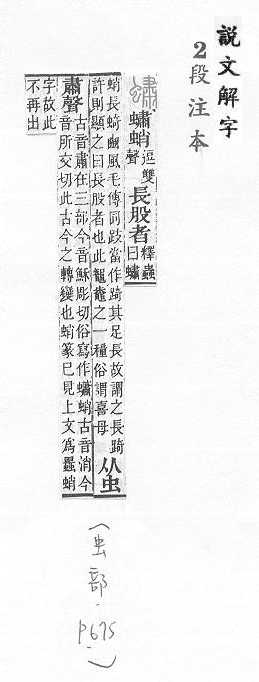 說文解字
2段注本
蠨蛸逗雙聲長股者釋蟲曰蠨
蛸長踦豳風毛傳同跂當作踦其足長故謂之長踦
許則顯之曰長股者也此鼅鼄之一種俗謂喜母
从虫
肅聲
古音肅在三部今音穌彫切俗寫作蠨蛸古音消今
音所交切此古今之轉變也蛸篆已見上文為蟲蛸
字故此
不再出
（虫部·P675）